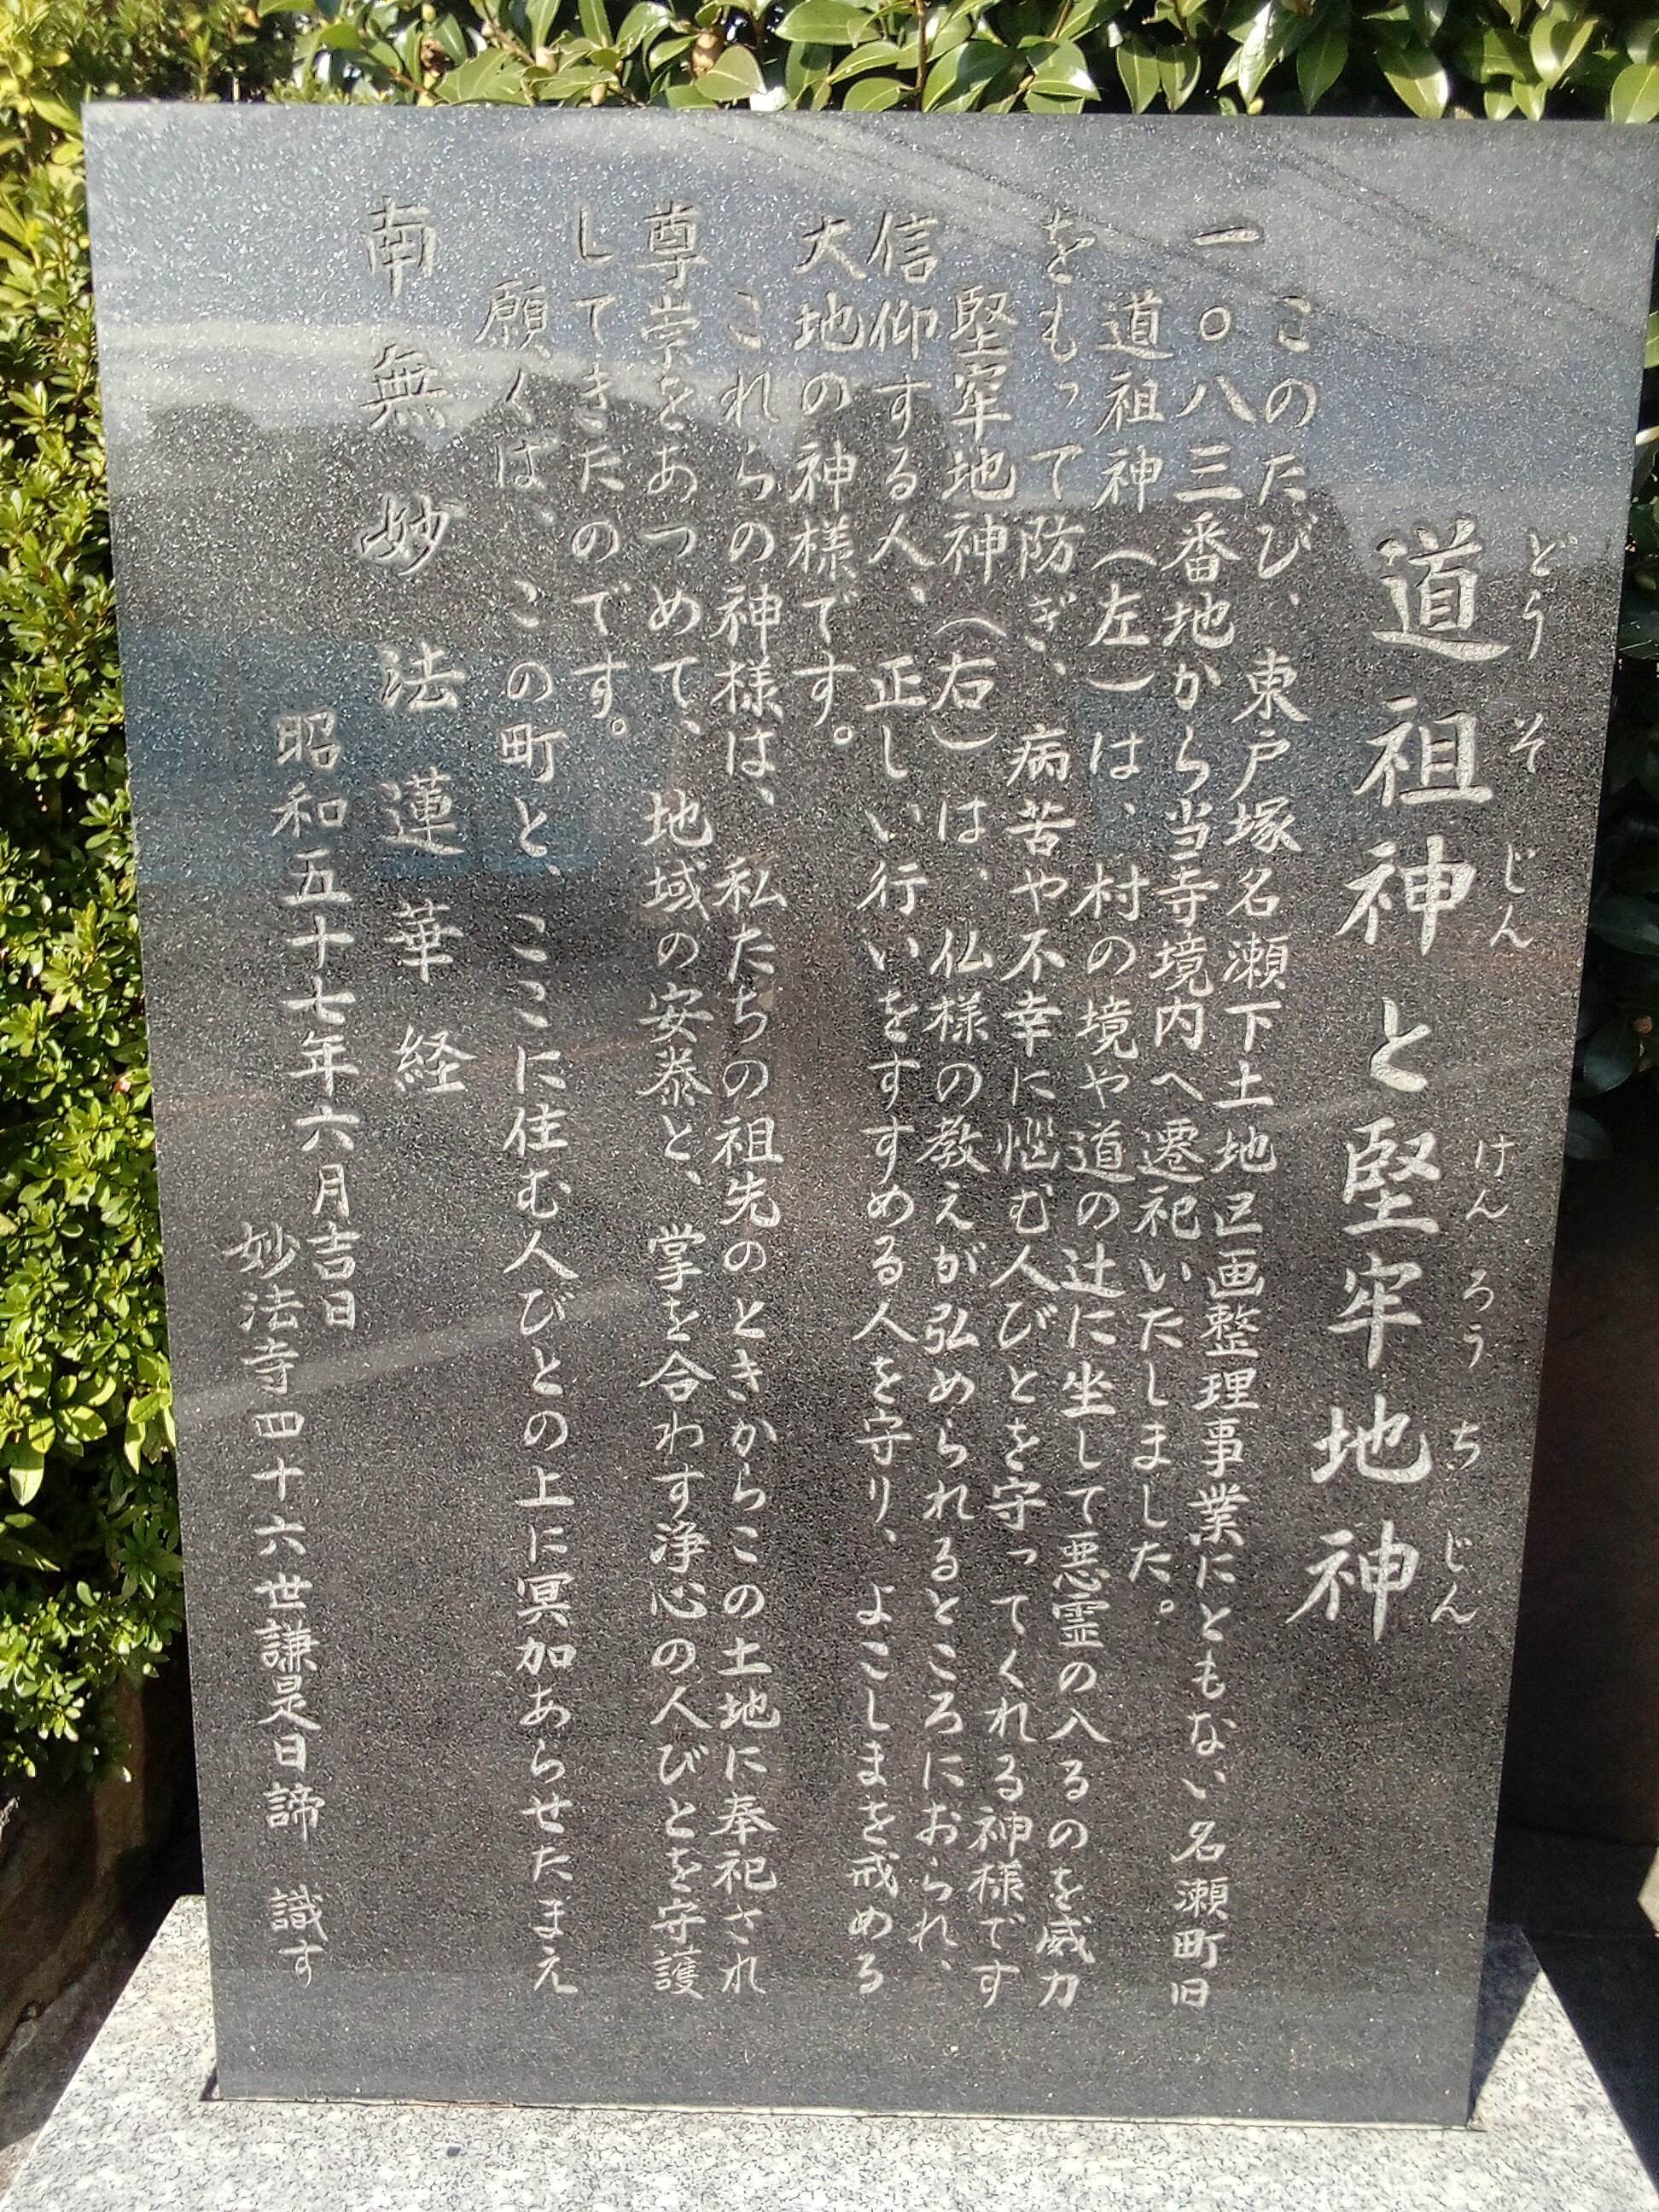 道祖神と堅牢地神
どうそじん けんろうちじん
このたび、東戸塚名瀬下土地区画整理事業にともない名瀬町旧
一〇八三番地から当寺境内へ遷祀いたしました。
道祖神(左)は、村の境や道の辻に坐して悪霊の入るのを威力
をもって防ぎ、病苦や不幸に悩む人びとを守ってくれる神様です
堅牢地神(右)は、仏様の教えが弘められるところにおられ、
信仰する人、正しい行いをすすめる人を守り、よこしまを戒める
大地の神様です。
これらの神様は、私たちの祖先のときからこの土地に奉祀され
尊崇をあつめて、地域の安泰と、掌を合わす浄心の人びとを守護
してきだのです。
願くば、この町と、ここに住む人びとの上に冥加あらせたまえ
南無妙法蓮華経
昭和五十七年六月吉日
妙法寺四十六世謙是日諦 識す